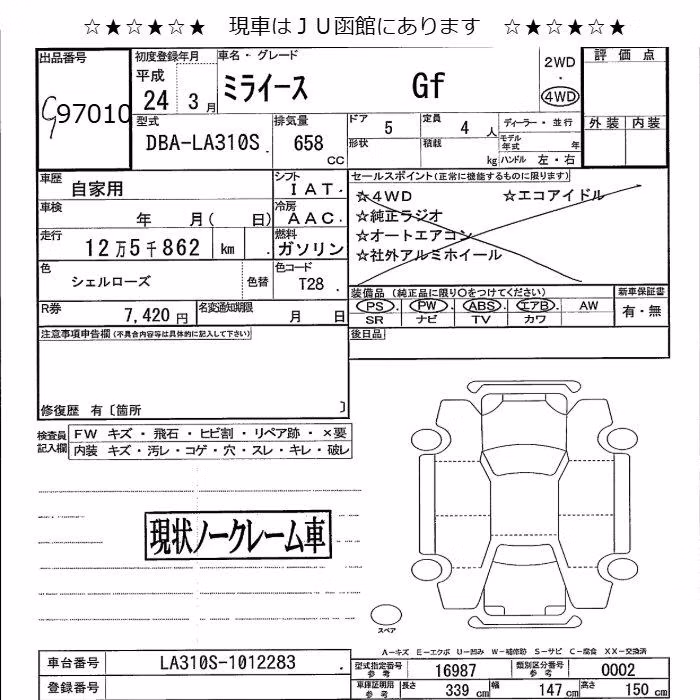 ☆★☆★☆★ 現車はＪＵ函館にあります ☆★☆★☆★
出品番号 初度登録年月 車名・グレード 2WD 評価点
平成 ミライース Gf ・
97010 24 3月 4WD
型式 排気量 ドア 5 定員 4 人 ディーラー・並行 外装 内装
DBA-LA310S 658 cc 形状 積載 kg モデル年式 年
ハンドル 左・右
車歴 自家用 シフト IAT セールスポイント(正常に機能するものに限ります)
車検 年 月( 日) 冷房 AAC ☆4WD ☆エコアイドル
☆純正ラジオ
走行 12万5千862 km 燃料 ガソリン ☆オートエアコン
☆社外アルミホイール
色 シェルローズ 色替 色コード T28
装備品(純正品に限り○をつけてください) 新車保証書
R券 7,420円 名変通知期限 月 日 PS PW ABS エアB AW 有・無
SR ナビ TV カワ
注意事項申告欄(不具合内容等は具体的に記入して下さい) 後日品
修復歴 有〔箇所 〕
検査員記入欄 FW キズ・飛石・ヒビ割・リペア跡・×要
内装 キズ・汚レ・コゲ・穴・スレ・キレ・破レ
現状ノークレーム車
スペア
A-キズ E-エクボ U-凹み W-補修跡 S-サビ C-腐食 XX-交換済
車台番号 LA310S-1012283 型式指定番号参考 16987 類別区分番号参考 0002
登録番号 車庫証明用参考 長さ 339cm 幅 147cm 高さ 150cm